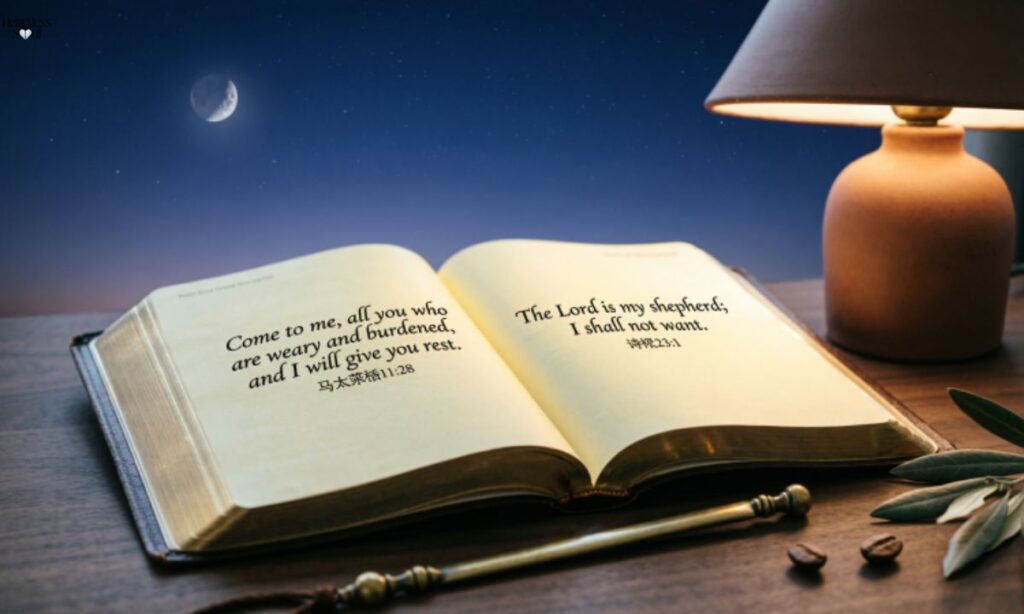 Come to me, all you who
are weary and burdened,
and I will give you rest.
马太莱栖11:28
The Lord is my shepherd;
I shall not want.
23:1